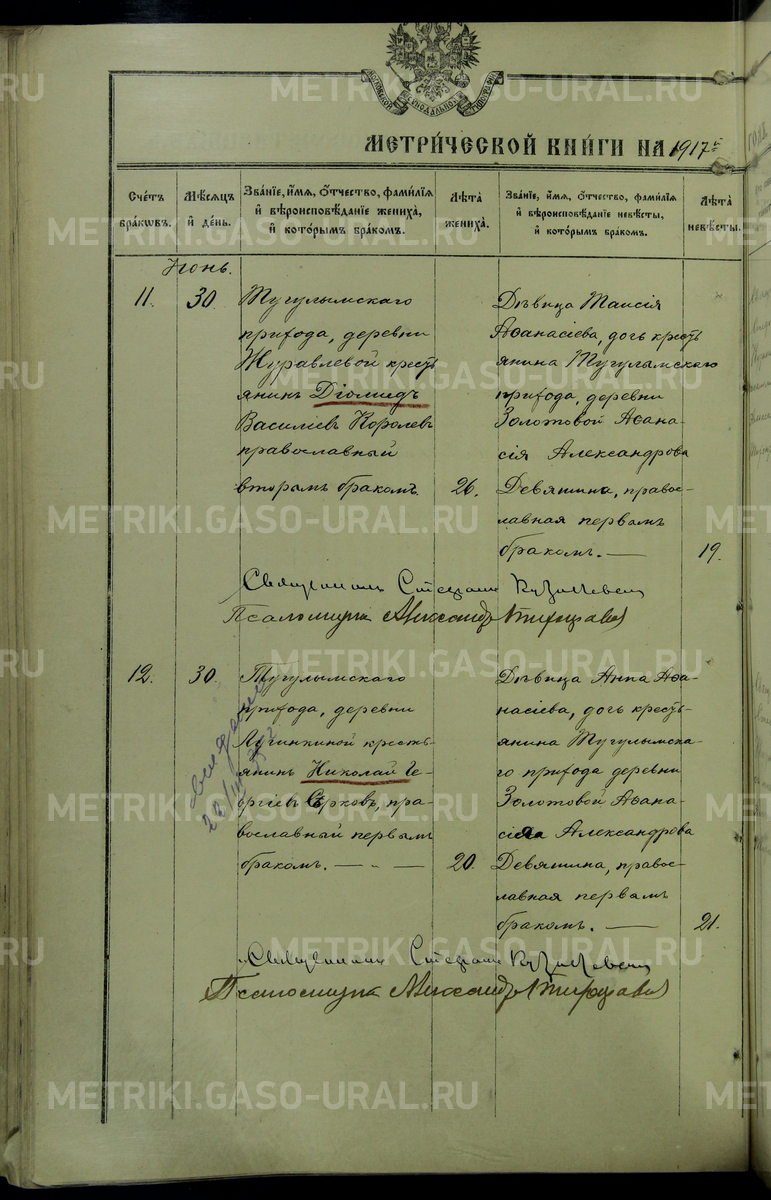 МЕТРИ́ЧЕСКОЙ КНИ́ГИ НА 1917 г
Сче́тъ бра́ковъ.
Мѣ́сяцъ и́ де́нь.
Зва́нїе, и́мя, ѻ́тчество, фами́лїя и́ вѣроисповѣ́данїе жениха̀, и́ кото́рымъ бра́комъ.
Лѣ́та жениха̀.
Зва́нїе, и́мя, ѻ́тчество, фами́лїя и́ вѣроисповѣ́данїе невѣ́сты, и́ кото́рымъ бра́комъ.
Лѣ́та невѣ́сты.
Іюнь.
11.
30.
Тугулымскаго
прихода, деревни
Журавлевой крестъ
янинъ Діомидъ
Василіевъ Королевъ
православный
вторымъ бракомъ.
26.
Дѣвица Таисія
Аѳанасіева, дочь крестъ
янина Тугулымскаго
прихода, деревни
Золотовой Аѳана-
сія Александрова
Девятина, право-
славная первымъ
бракомъ. —
19.
Священникъ Стефанъ
Псаломщикъ Александръ
12.
30.
Тугулымскаго
прихода, деревни
Лучинкиной кресть-
янинъ Николай Ге-
оргіевъ Сѣрковъ, пра-
вославный первымъ
бракомъ. — „ —
20.
Дѣвица Анна Аѳа-
насіева, дочь кресть-
янина Тугулымска-
го прихода деревни
Золотовой Аѳана-
сія Александрова
Девятина, право-
славная первымъ
бракомъ. —
21.
Священникъ Стефанъ
Псаломщикъ Александръ
METRIKI.GASO-URAL.RU